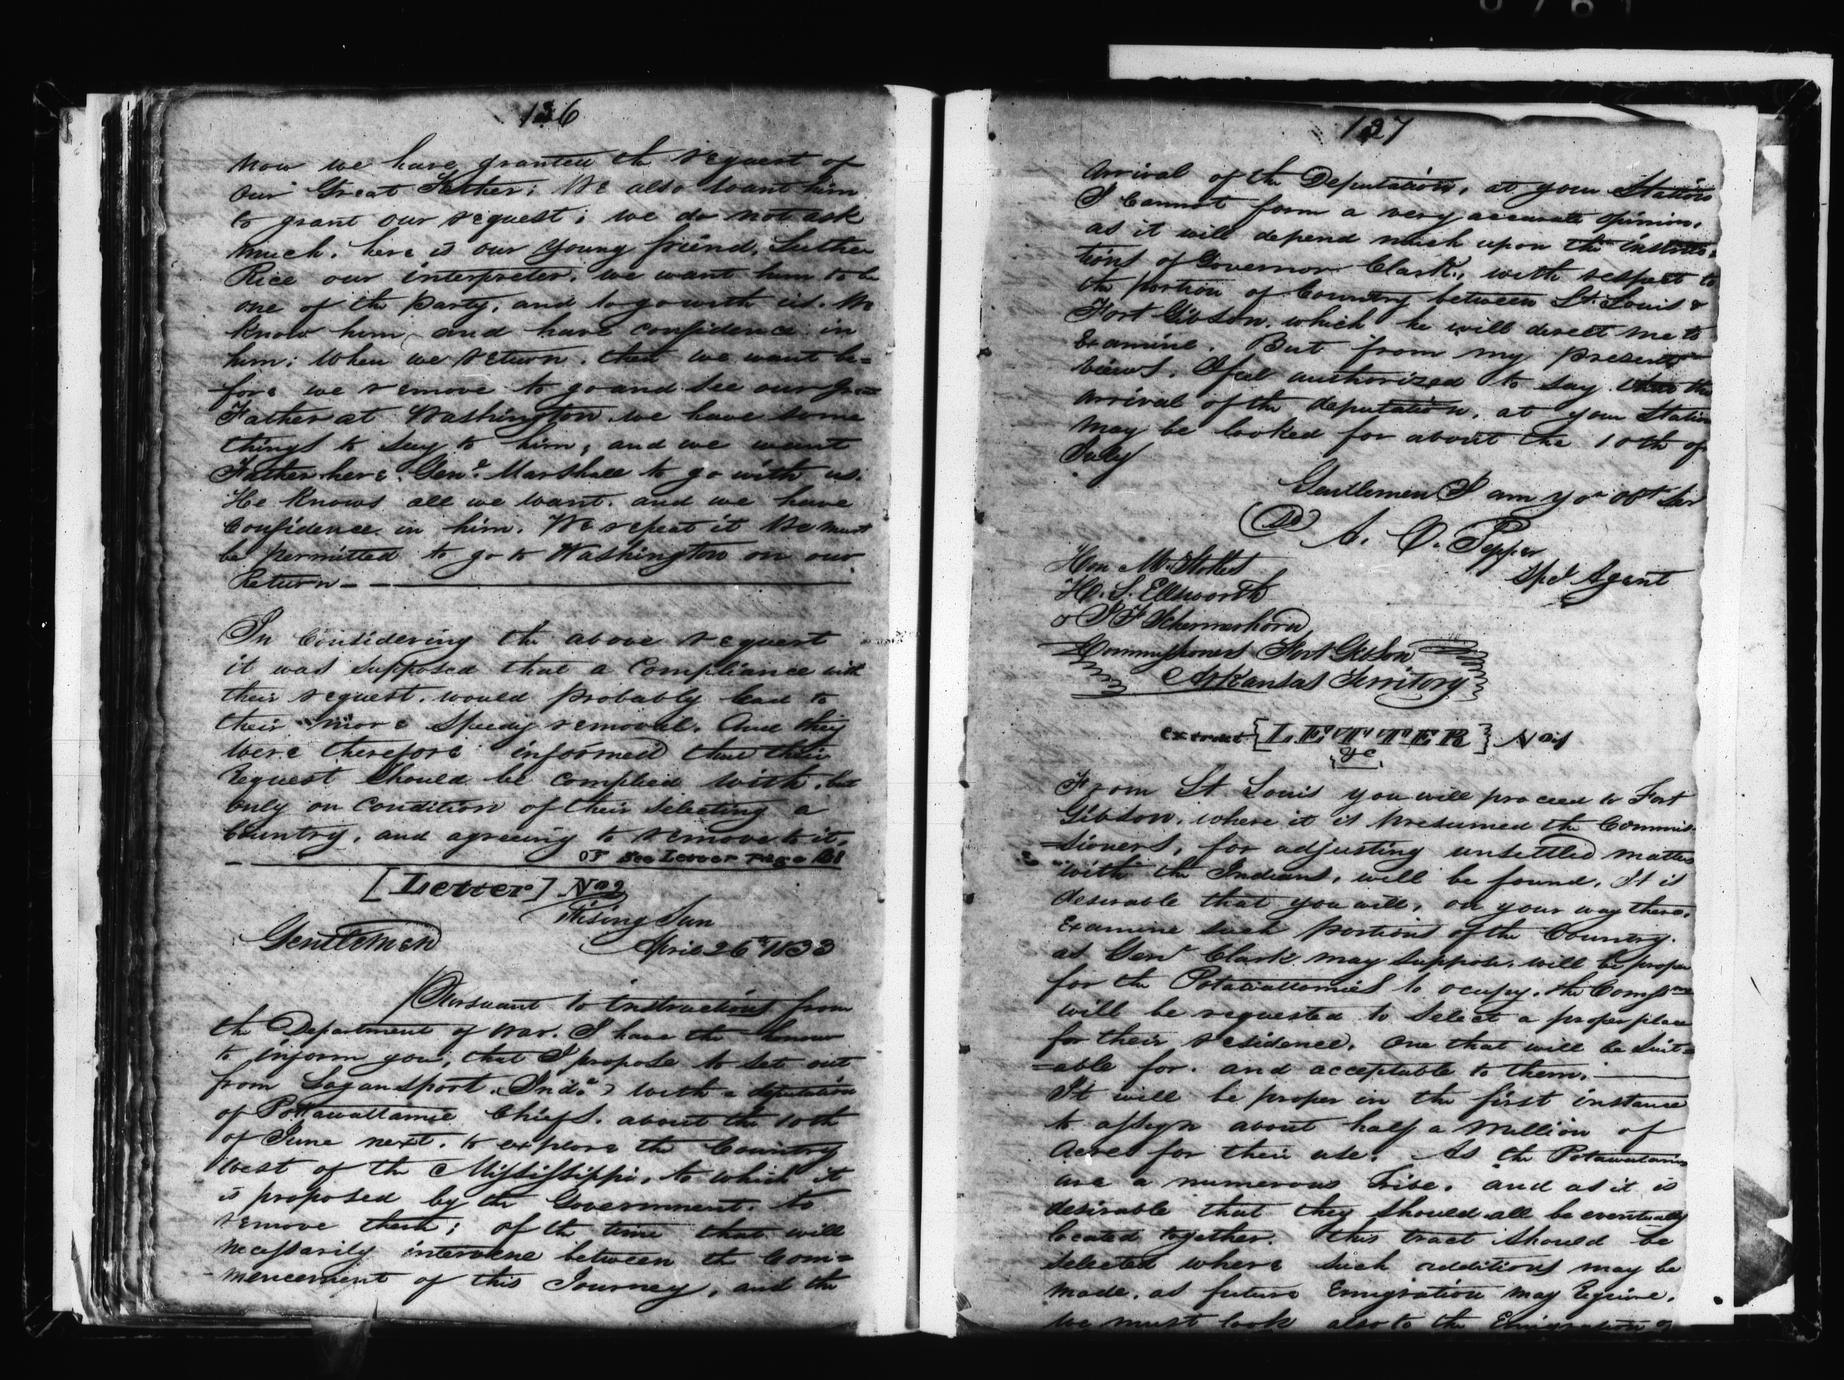 136
now we have granted the request of
our Great Father; We also want him
to grant our request; we do not ask
much. here is our young friend, Luther
Rice our interpreter. we want him to be
one of the party, and to go with us. We
know him, and have confidence in
him; When we return. then we want be=
fore we remove to go and see our Great
Father at Washington we have some
things to say to him, and we want
Father here. Genl. Marshall to go with us.
He knows all we want. and we have
Confidence in him. We repeat it We must
be permitted to go to Washington on our
Return —
In Considering the above request
it was supposed that a Compliance with
their request. would probably lead to
their more speedy removal. And they
were therefore informed that their
request should be complied with. but
only on condition of their selecting a
Country, and agreeing to remove to it.
See Letter Page 131
[Letter] No 2
Rising Sun
Gentlemen April 26th 1833
Pursuant to instructions from
the Department of War. I have the honour
to inform you, that I propose to set out
from Logansport. Inda. with a deputation
of Potawattamie Chiefs. about the 10th
of June next. to explore the Country
West of the Mississippi, to which it
is proposed by the Government. to
remove them; of the time that will
necessarily intervene between the Com=
mencement of this Journey, and the
127
Arrival of the Deputation, at your Station
I Cannot form a very accurate opinion.
as it will depend much upon the instruc=
tions of Governor Clark., with respect to
the portion of Country between St. Louis &
Fort Gibson. which he will direct me to
Examine. But from my present
views, I feel authorized to say the
arrival of the deputation. at your Station
may be looked for about the 10th of
July
Gentlemen I am yor obt Sr
A. C. Pepper
Spcl Agent
Hon M. Stokes
H. L. Ellsworth
& J F Schermerhorn
Commissioners Fort Gibson
Arkansas Territory
extract [LETTER] No 1
&c
From St. Louis you will proceed to Fort
Gibson. where it is presumed the Commis=
=sioners, for adjusting unsettled matters
with the Indians, will be found. It is
desirable that you will, on your way there.
Examine such portion of the Country.
as Genl Clark may suppose. will be proper
for the Potawattomies to occupy. the Comrs
will be requested to select a proper place
for their residence. One that will be suit=
=able for. and acceptable to them.
It will be proper in the first instance
to assign about half a million of
Acres for their use. As the Potawatamies
are a numerous Tribe. and as it is
desirable that they should all be eventually
located together. this tract should be
selected where such additions may be
made. as future Emigration may require.
We must look also to the Emigration of